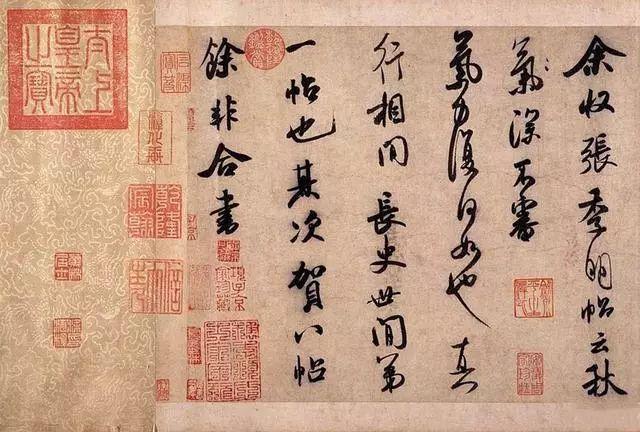 余收張季明帖云秋
氣深不審
氣力復何如也真
行相間長史世間第
一帖也其次賀八帖
餘非合書
太上皇帝之寶
淳化軒
乾隆宸翰
信天主人